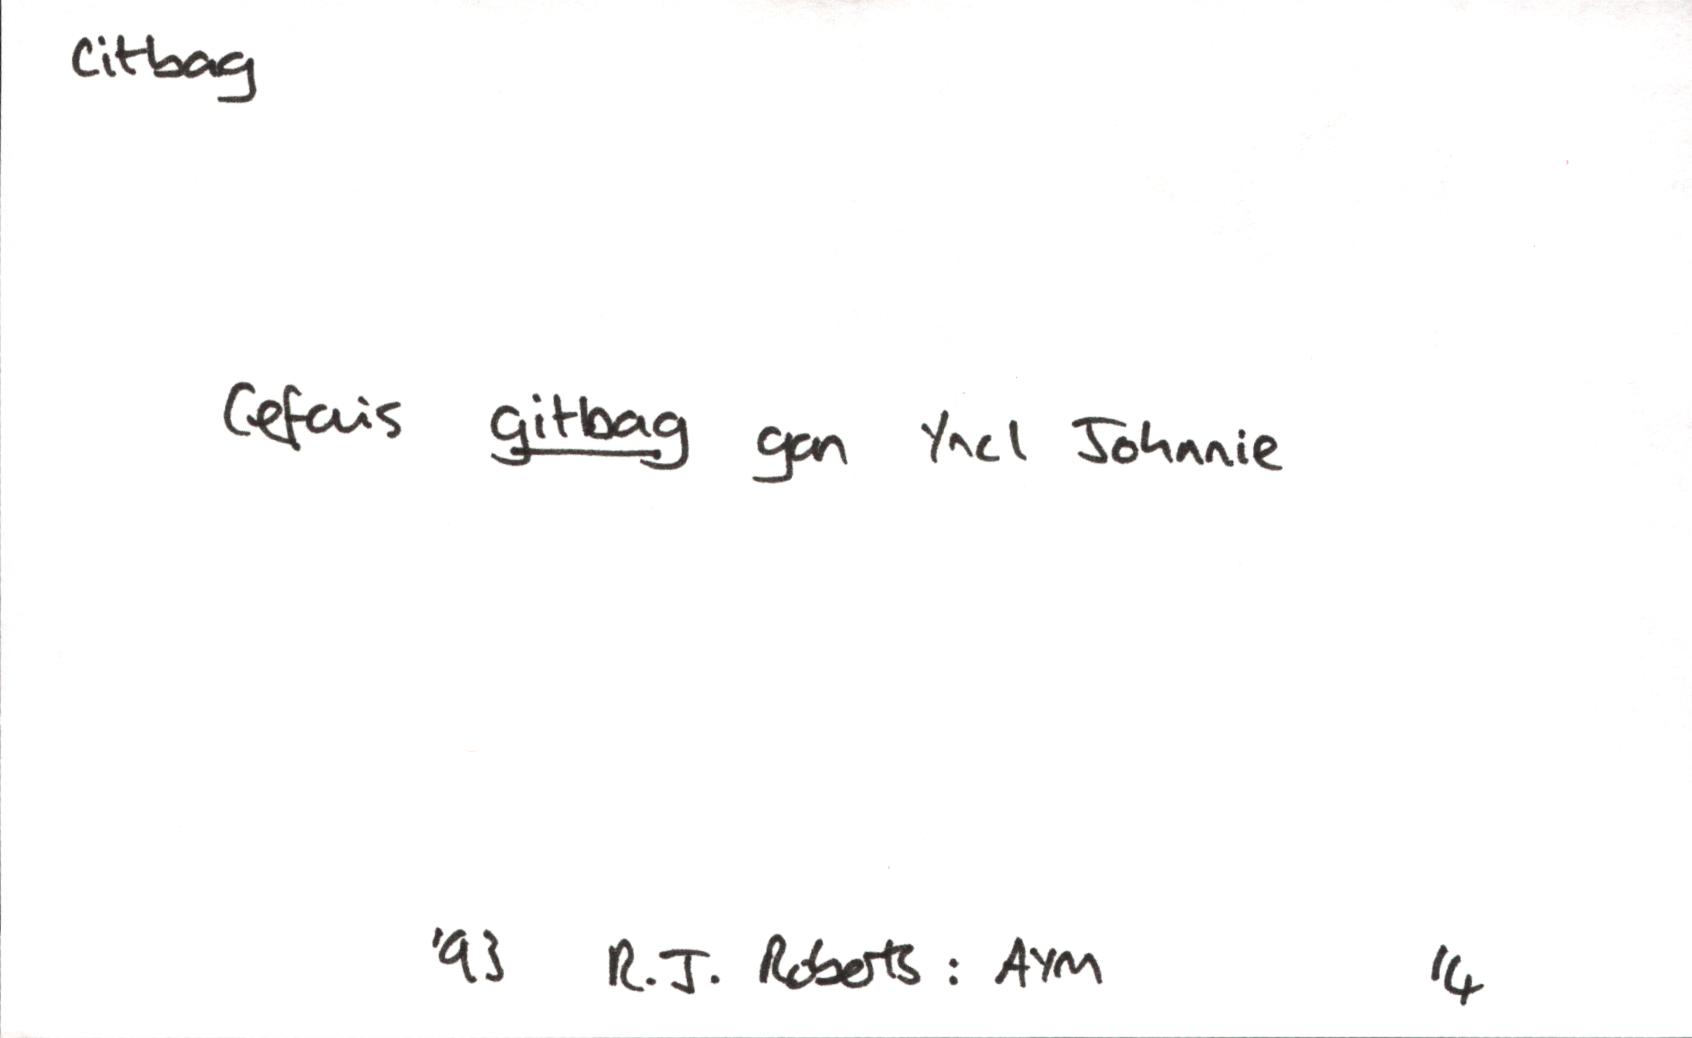 Citbag
Cefais gitbag gan Yncl Johnnie
'93 R.J. Roberts: AYM 14